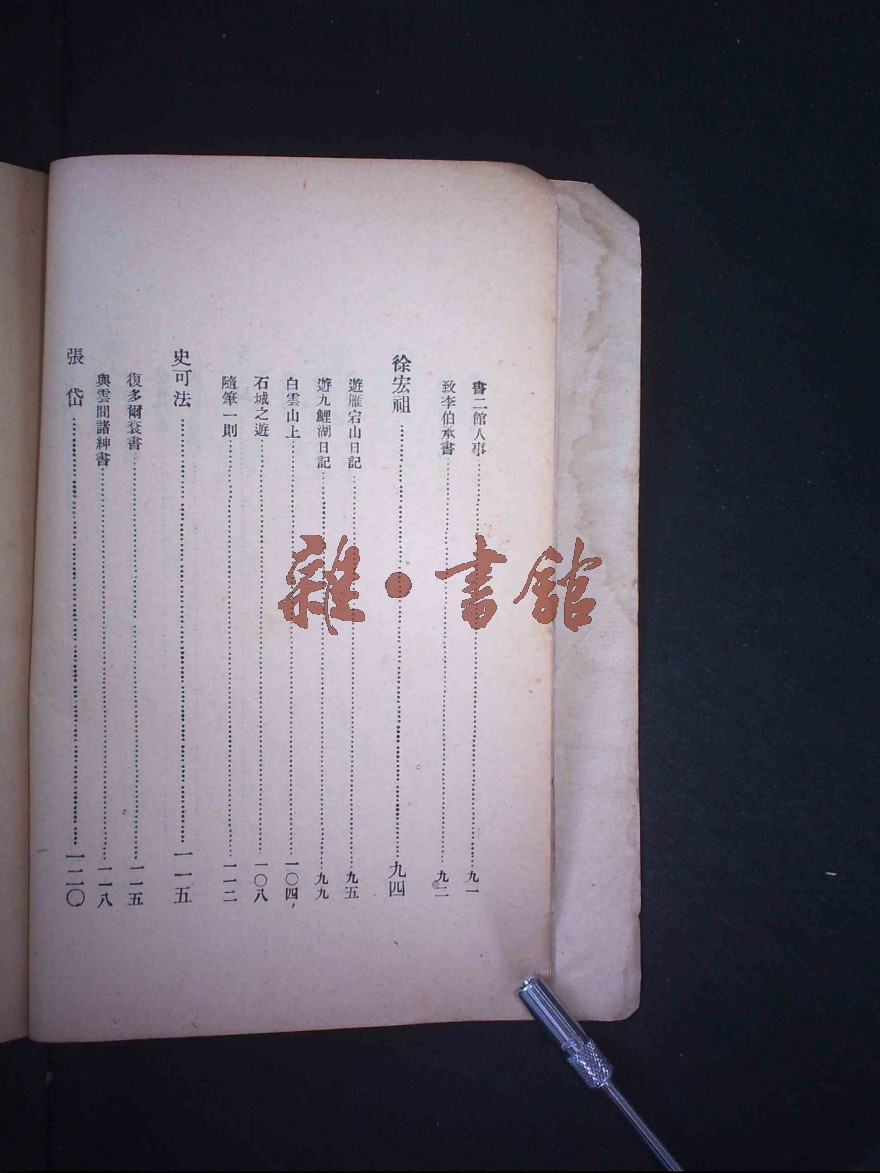 書二館人事……九一
致李伯承書……九二
徐宏祖……九四
遊雁宕山日記……九五
遊九鯉湖日記……九九
白雲山上……一〇四
石城之遊……一〇八
隨筆一則……一一二
史可法……一一五
復多爾袞書……一一五
與雲間諸紳書……一一八
張岱……一二〇
雜·書館